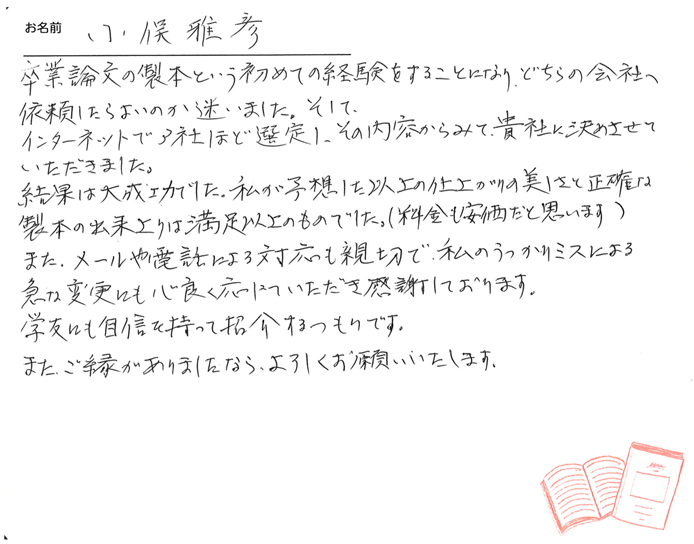 お名前 小俣雅彦
卒業論文の製本という初めての経験をすることになり、どちらの会社へ
依頼したらよいのか迷いました。そして、
インターネットで3社ほど選定し、その内容からみて、貴社に決めさせて
いただきました。
結果は大成功でした。私が予想した以上の仕上がりの美しさと正確な
製本の出来上りは満足以上のものでした。(料金も安価だと思います)
また、メールや電話による対応も親切で、私のうっかりミスによる
急な変更にも心良く応じていただき感謝しております。
学友にも自信を持って紹介するつもりです。
また、ご縁がありましたなら、よろしくお願いいたします。